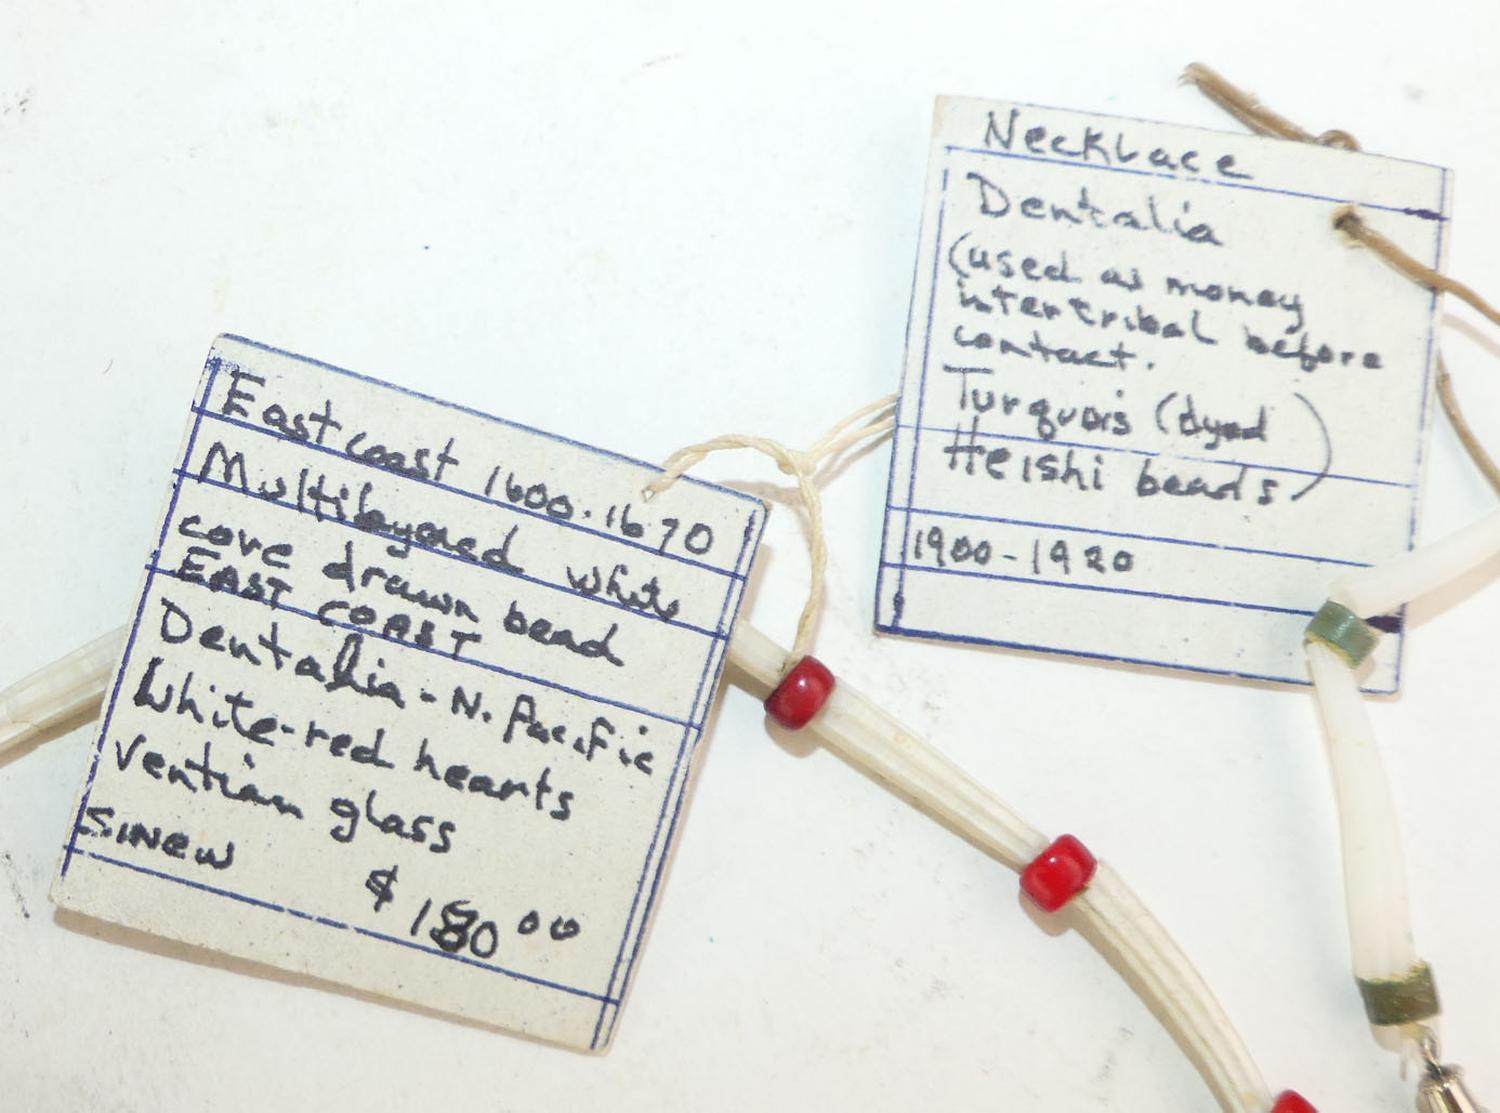 East coast 1600-1670
Multilayered white
cove drawn bead
EAST COAST
Dentalia - N. Pacific
White-red hearts
ventian glass
SINEW
$ 180 00
Necklace
Dentalia
(used as money
intertribal before
contact.
Turquois (dyed
Heishi beads)
1900-1920